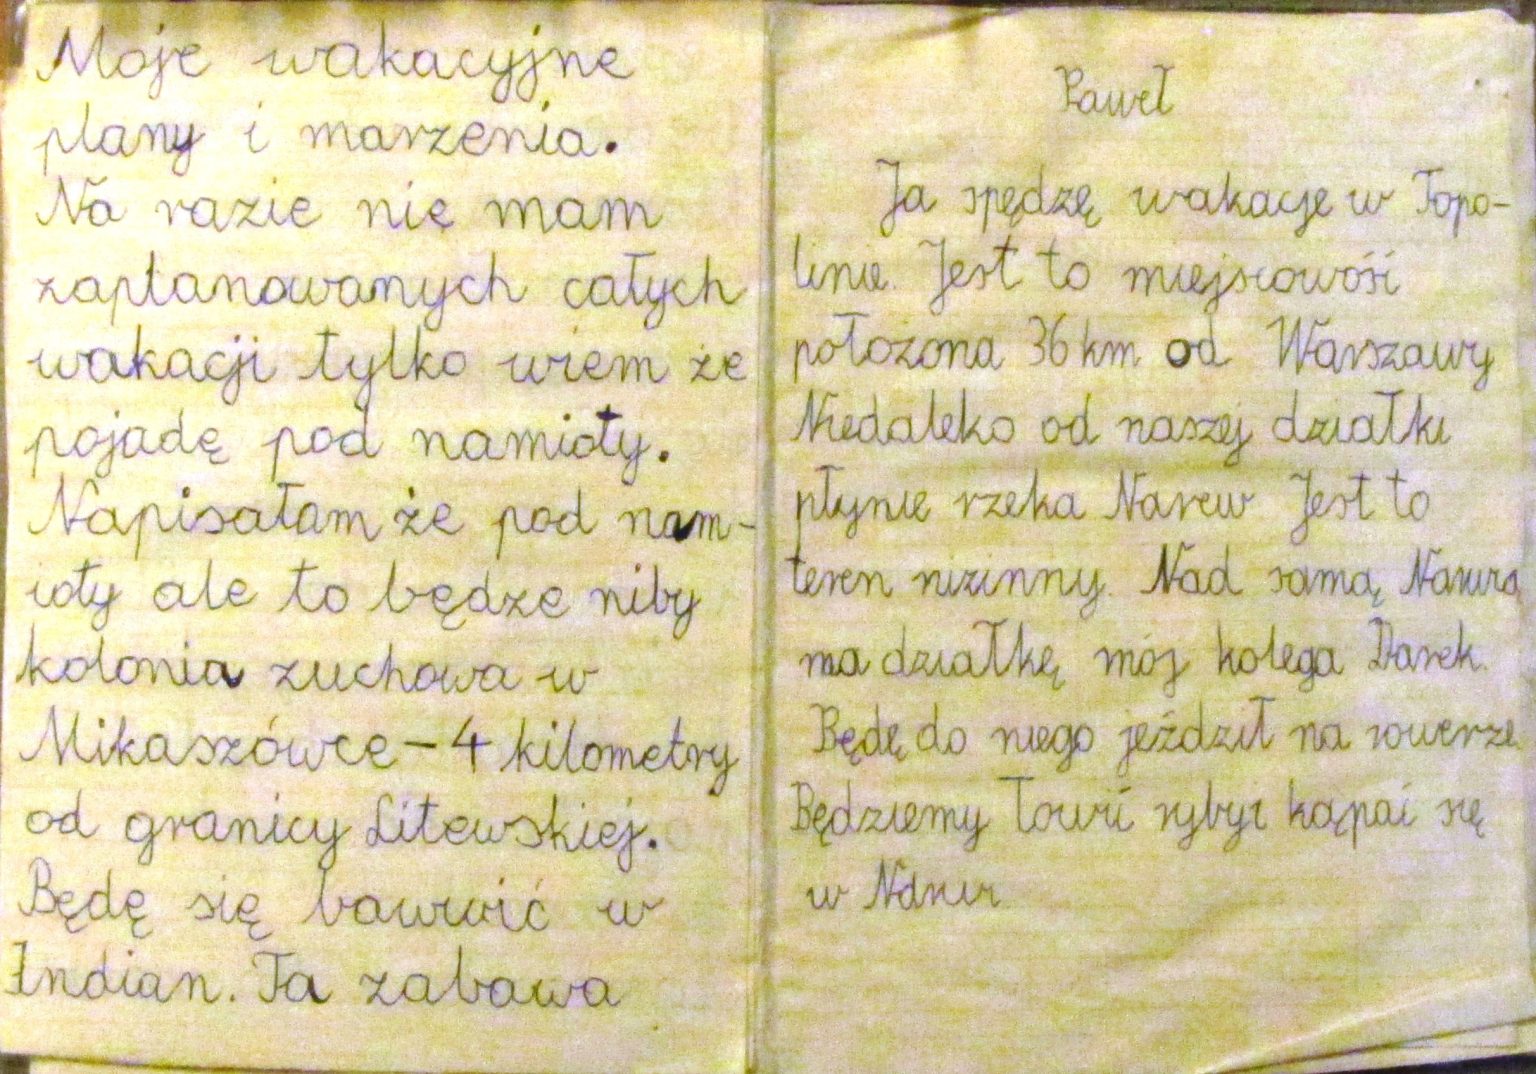 Moje wakacyjne
plany i marzenia.
Na razie nie mam
zaplanowanych całych
wakacji tylko wiem że
pojadę pod namioty.
Napisałam że pod nam-
ioty ale to będze niby
kolonia zuchowa w
Mikaszówce - 4 kilometry
od granicy Litewskiej.
Będę się bawić w
Indian. Ta zabawa
Paweł
Ja spędzę wakacje w Topo-
linie. Jest to miejscowość
położona 36 km od Warszawy
Niedaleko od naszej działki
płynie rzeka Narew Jest to
teren nizinny. Nad samą Narwią
ma działkę mój kolega Darek.
Będę do niego jeździł na rowerze.
Będziemy łowić ryby i kąpać się
w Narwi